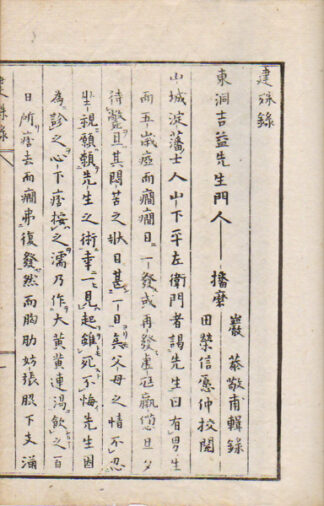 建殊錄
東洞吉益先生門人 播磨
巖 恭敬甫輯錄
田榮信愿仲校閱
山城淀藩士人山下平左衛門者謁先生曰有男生
而五歲瘂而癇癇日一發或再發虛尫羸憊旦夕
待斃且其悶苦之狀日甚一日矣父母之情不忍
坐視願賴先生之術幸一見起雖死不悔先生因
為診之心下痞按之濡乃作大黃黃連湯飲之百
日所痞去而癇弗復發然而胸肋妨張脇下支滿